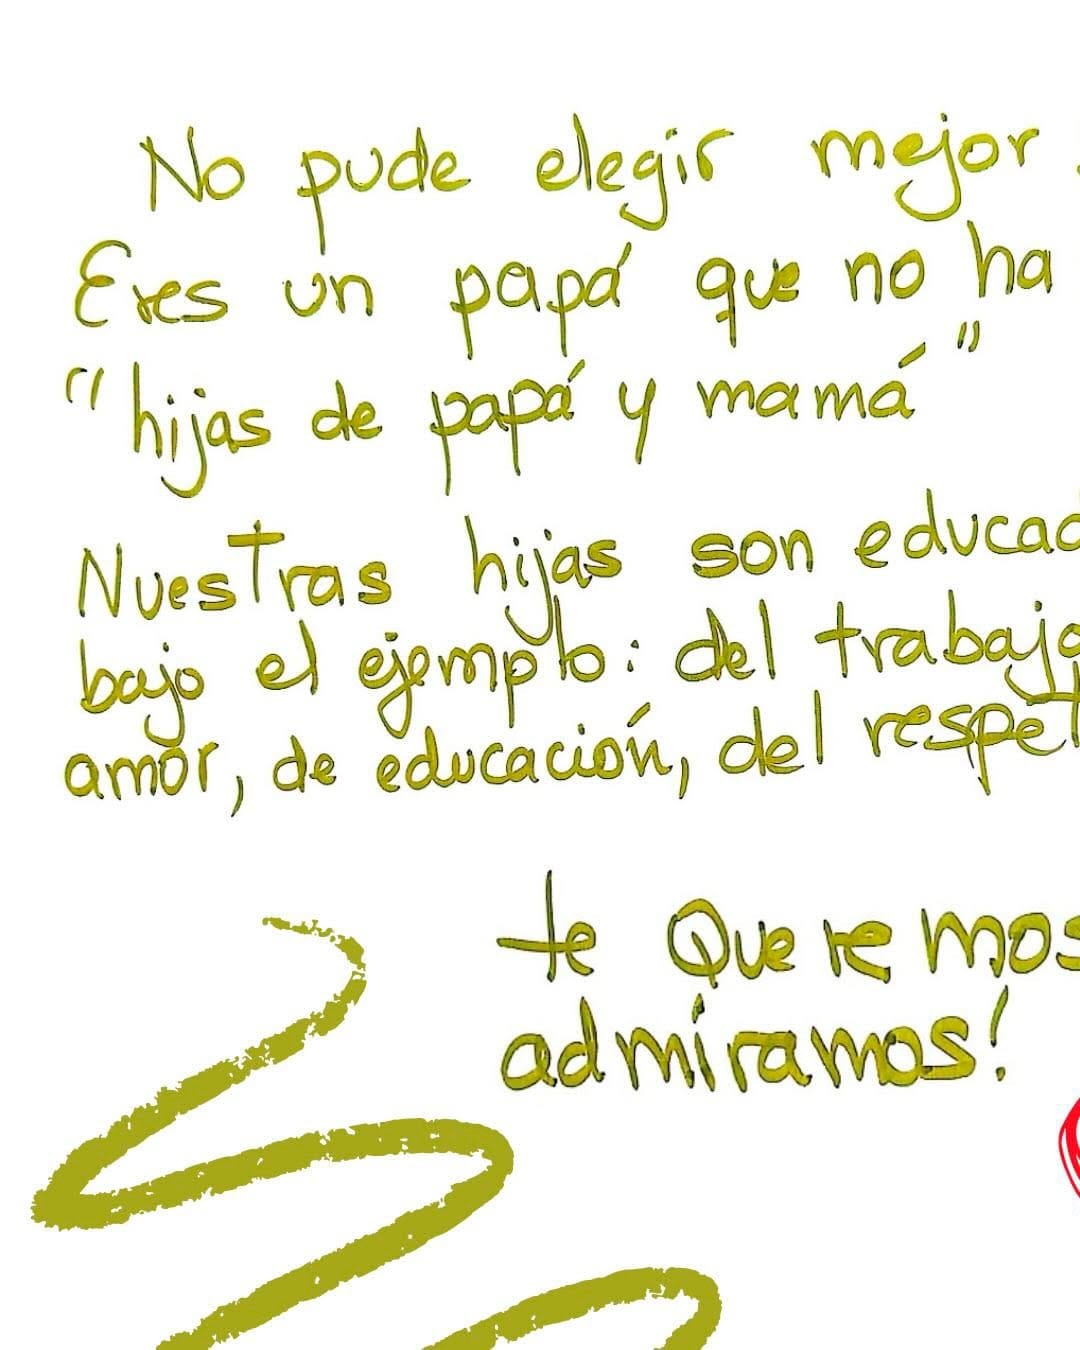 No pude elegir mejor
Eres un papá que no ha
"hijas de papá y mamá"
Nuestras hijas son educad
bajo el ejemplo: del trabajo
amor, de educación, del respet
te Queremos
admiramos!